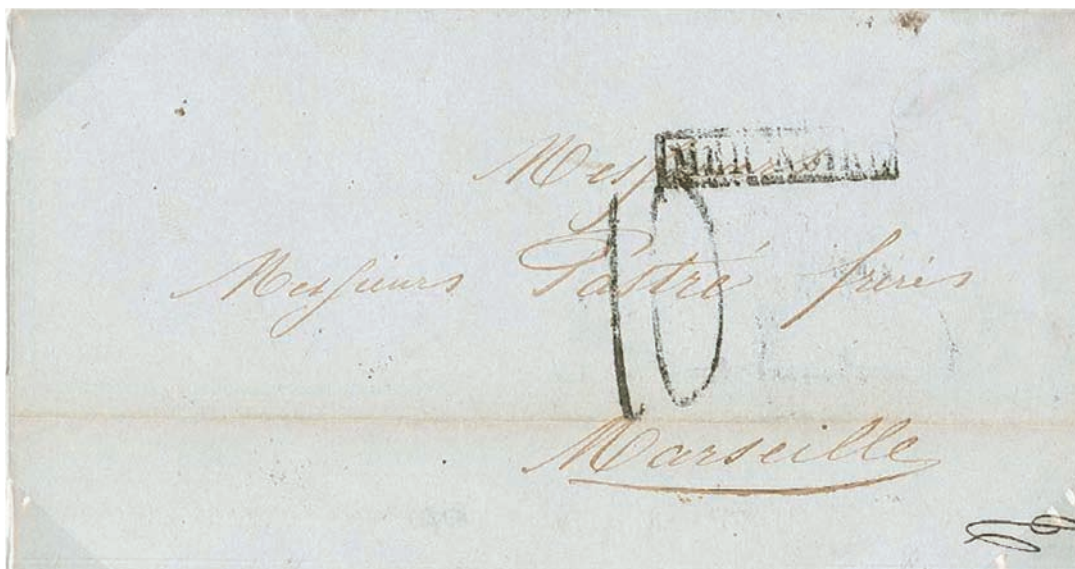 Messieurs
10
Messieurs Pastré frères
Marseille